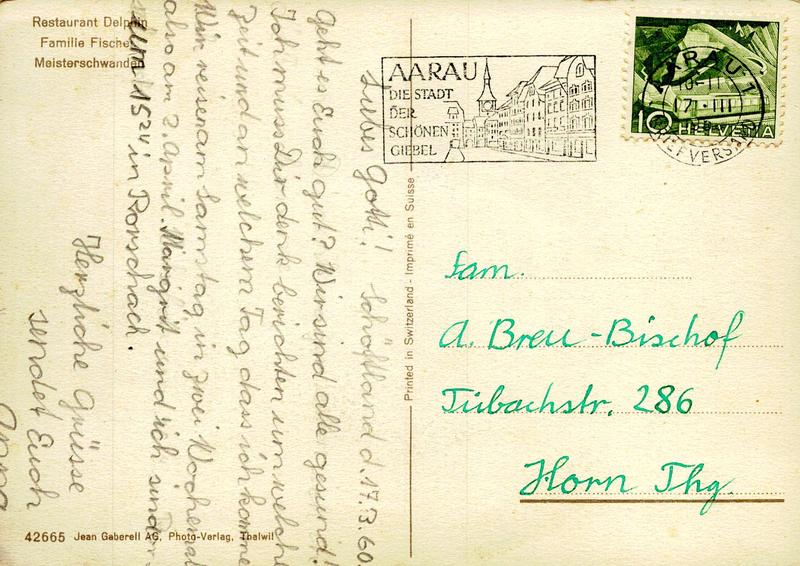 Restaurant Delphin
Familie Fischer
Meisterschwanden
Liebes Gotti! Schöftland d. 17.3.60.
Geht es Euch gut? Wir sind alle gesund!
Ich muss Dir denk berichten um welche
Zeit und an welchem Tag dass ich komme
Wir reisen am Samstag in zwei Wochen
also am 2. April. Margrit und ich sind
um 15 24 in Rorschach.
Herzliche Grüsse
sendet Euch
Anna
42665 Jean Gaberell AG, Photo-Verlag, Thalwil
Printed in Switzerland - Imprimé en Suisse
AARAU
DIE STADT
DER
SCHÖNEN
GIEBEL
AARAU 1
BRIEFVERSAND
10 HELVETIA
Fam.
A. Breu-Bischof
Tübachstr. 286
Horn Thg.